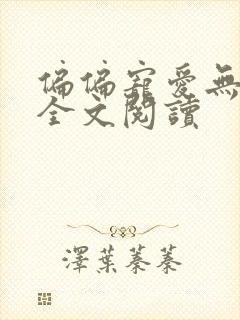 偏偏寵愛無
全文閱讀
澤葉蓁蓁